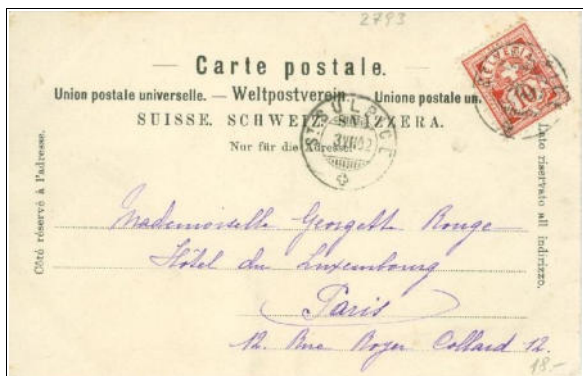 2793
Carte postale.
Union postale universelle. — Weltpostverein. — Unione postale un.
SUISSE. SCHWEIZ. SVIZZERA.
Nur für die Adresse.
Côté réservé à l'adresse.
Lato riservato all indirizzo.
ST. SULPICE
HELVETIA
10
Mademoiselle Georgette Rouge
Hôtel du Luxembourg
Paris
12. Rue Royer Collard 12.
18.-